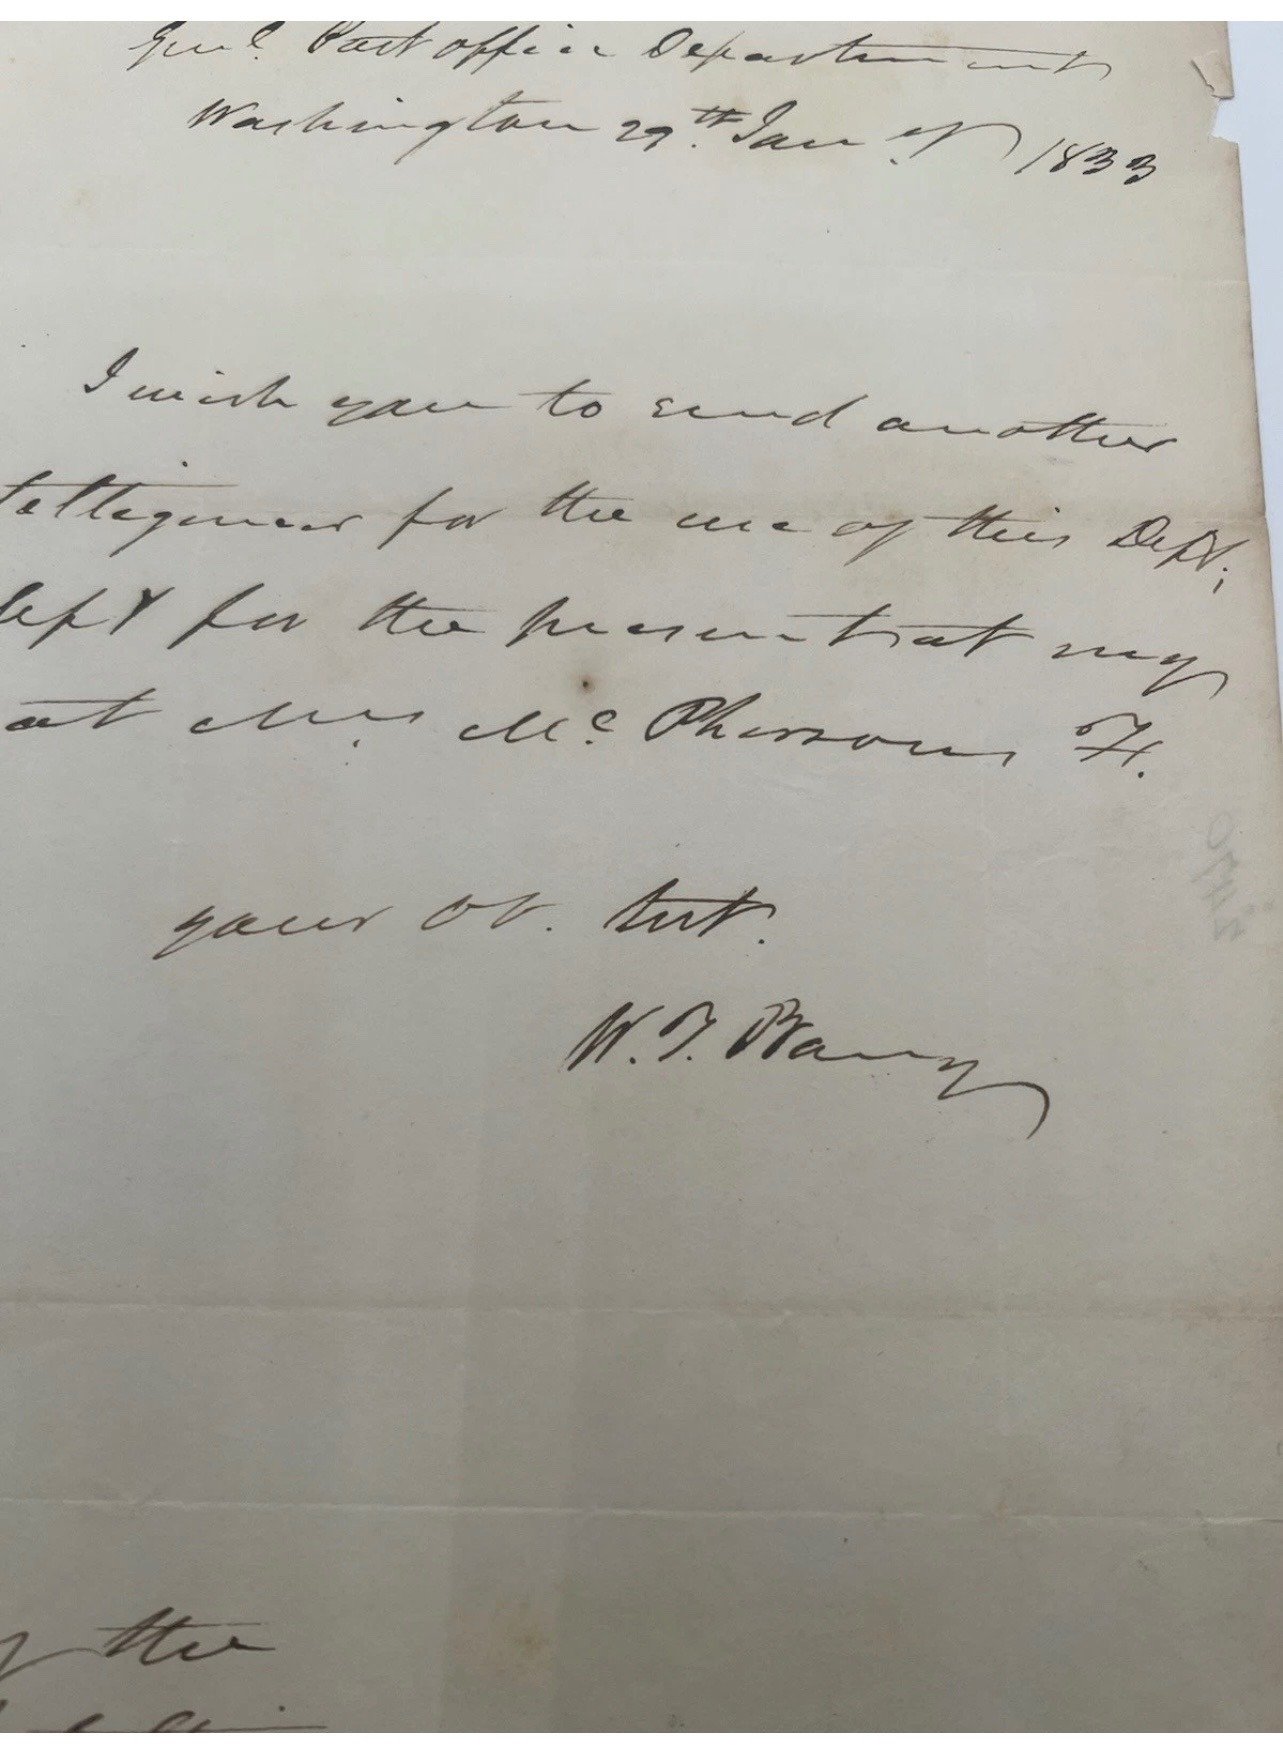 Genl. Post office Department
Washington 29th. Jany. 1833
I wish you to send another
telligencer for the use of this Dept;
left for the present at my
at Mrs. Mc. Phersons
your Ob. Svt.
W. T. Barry
the